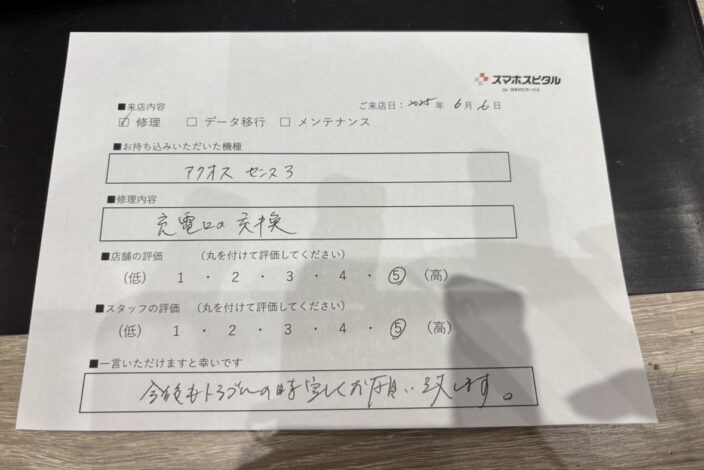 スマホスピタル
■来店内容
ご来店日：2025年 6月 6日
☑ 修理 □ データ移行 □ メンテナンス
■お持ち込みいただいた機種
アクオス センス3
■修理内容
充電口の交換
■店舗の評価 （丸を付けて評価してください）
（低） 1 ・ 2 ・ 3 ・ 4 ・ ⑤ （高）
■スタッフの評価 （丸を付けて評価してください）
（低） 1 ・ 2 ・ 3 ・ 4 ・ ⑤ （高）
■一言いただけますと幸いです
今後もトラブルの時宜しくお願い致します。